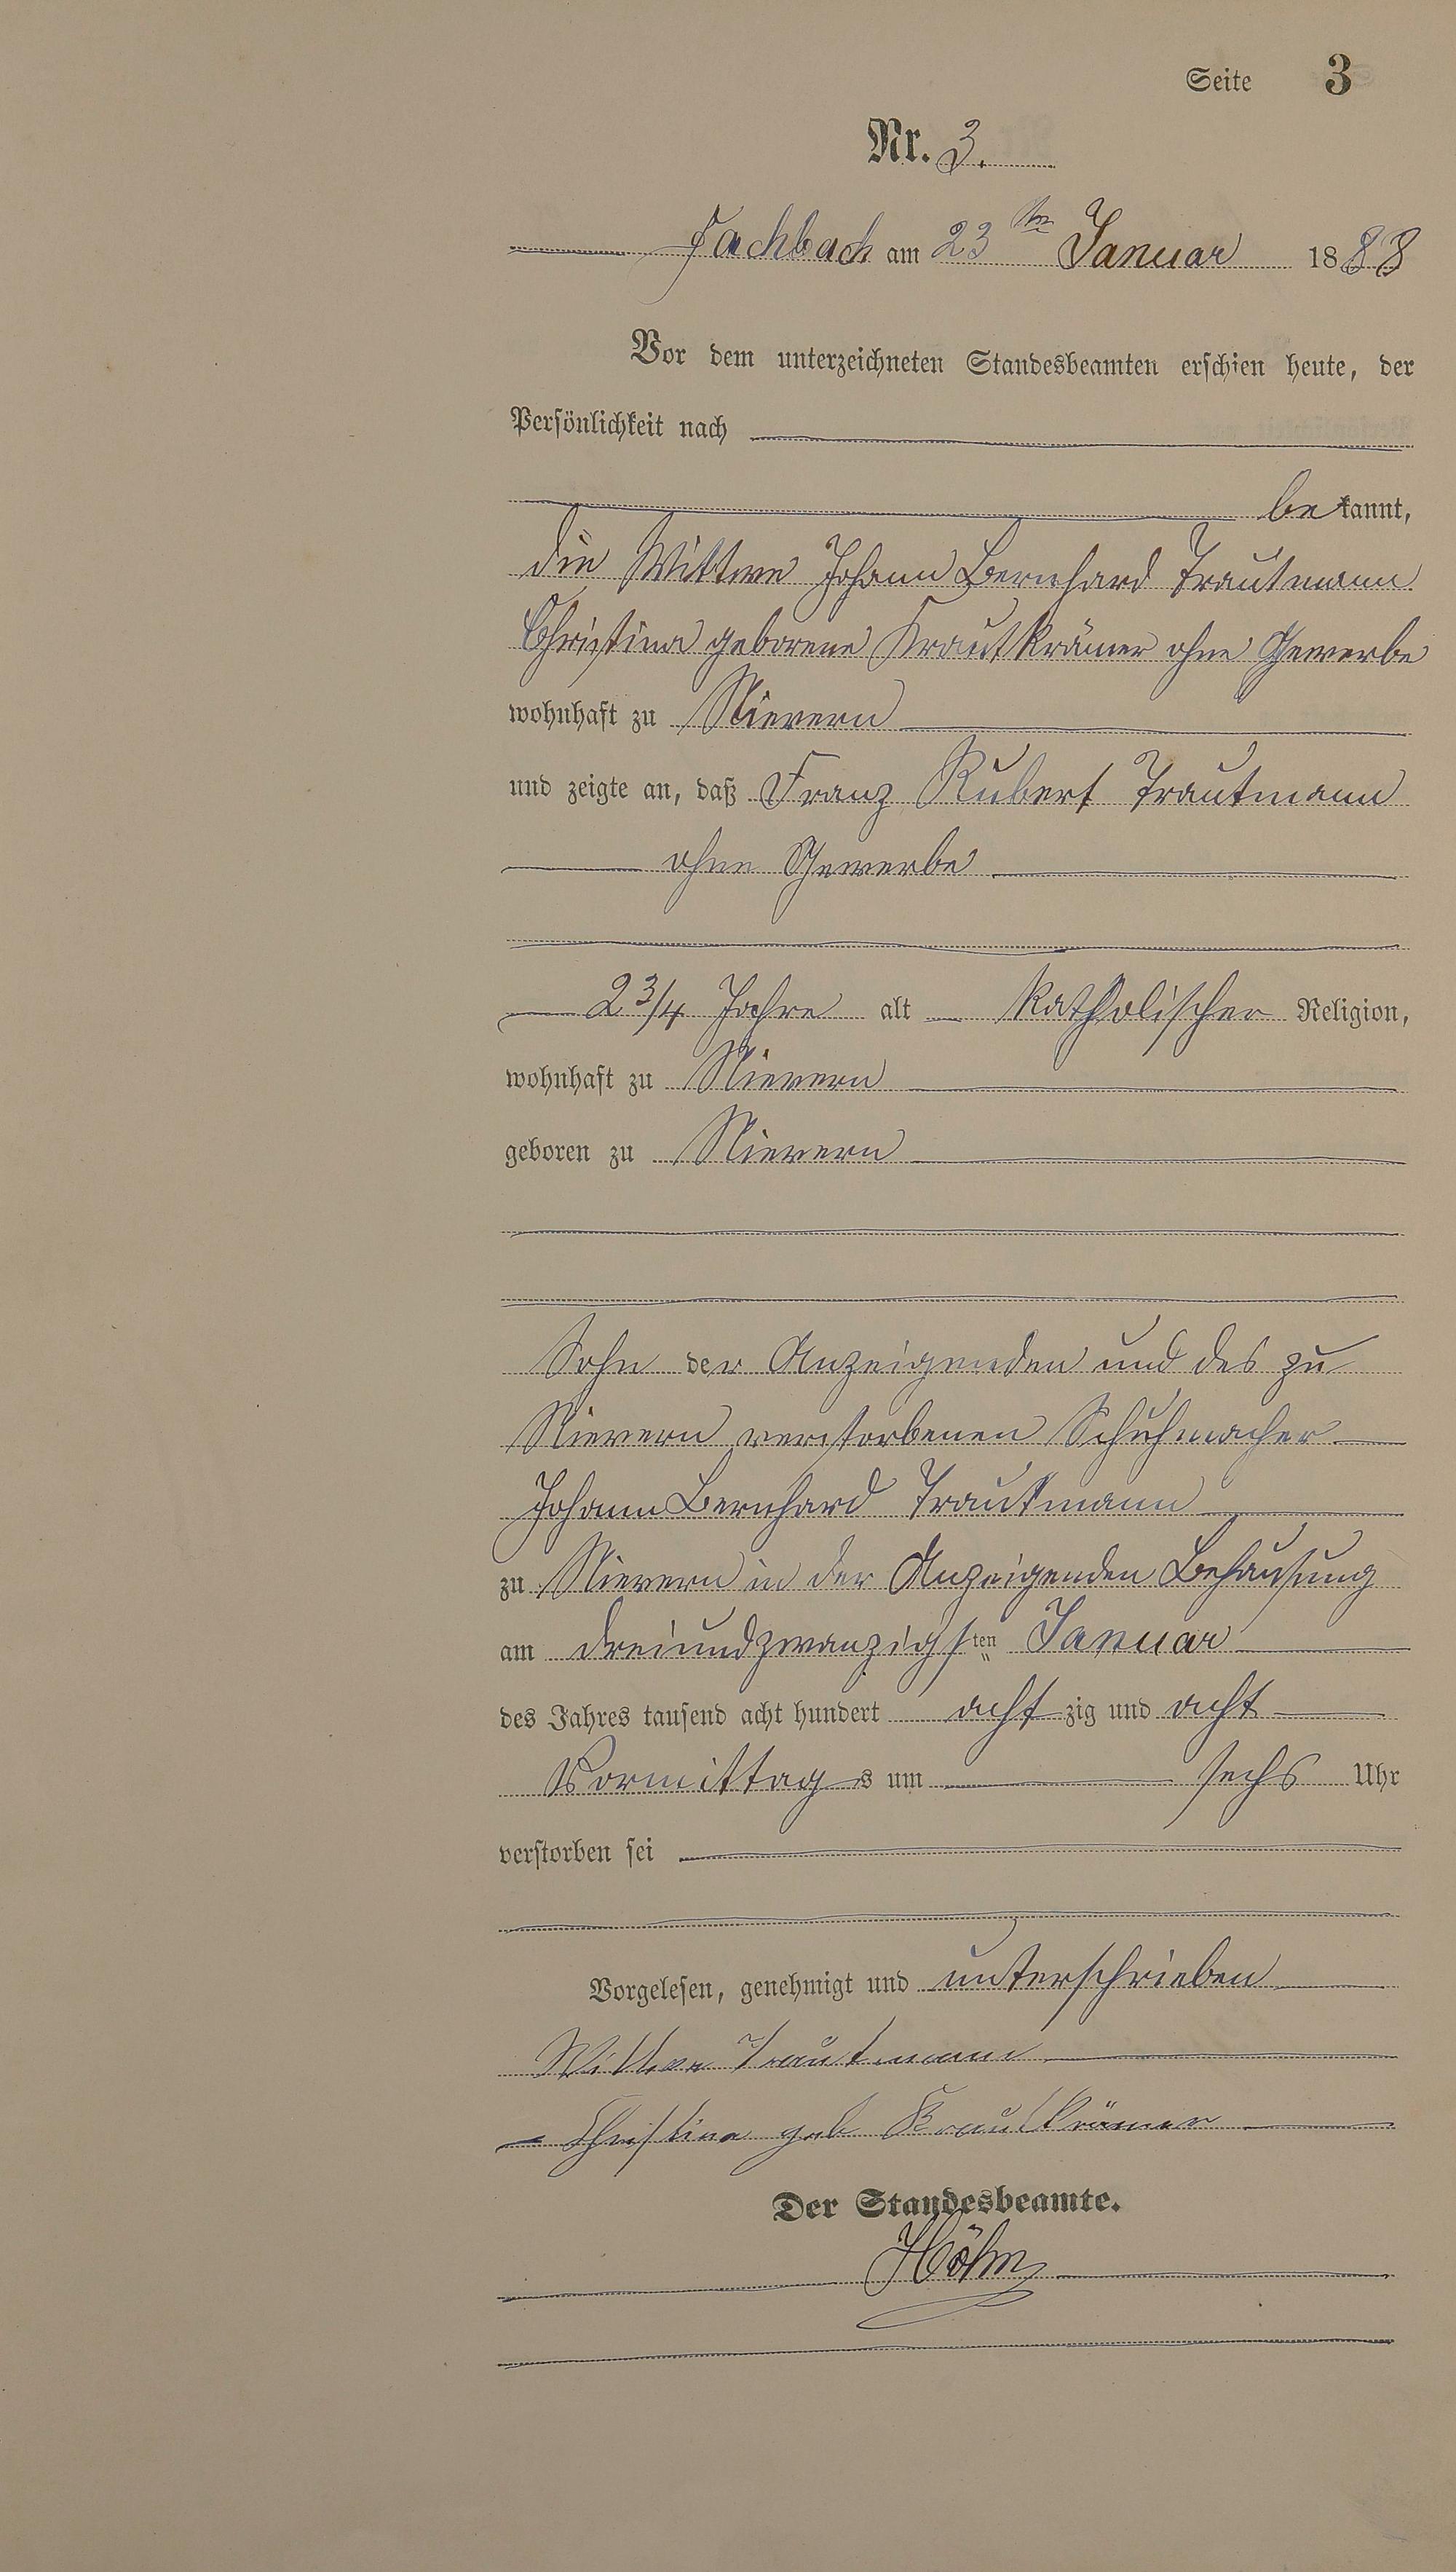 Seite 3
Nr. 3.
Fachbach am 23ten Januar 1888
Vor dem unterzeichneten Standesbeamten erschien heute, der
Persönlichkeit nach
bekannt,
die Wittwe Johann Bernhard Trautmann
Christina geborene Krautkrämer ohne Gewerbe
wohnhaft zu Nievern
und zeigte an, daß Franz Rubert Trautmann
ohne Gewerbe
2 3/4 Jahre alt katholischer Religion,
wohnhaft zu Nievern
geboren zu Nievern
Sohn der Anzeigenden und des zu
Nievern verstorbenen Schuhmacher
Johann Bernhard Trautmann
zu Nievern in der Anzeigenden Behausung
am dreiundzwanzigsten Januar
des Jahres tausend acht hundert achtzig und acht
Vormittags um sechs Uhr
verstorben sei
Vorgelesen, genehmigt und unterschrieben
Wittwe Trautmann
Christina geb Krautkrämer
Der Standesbeamte.
Höhn